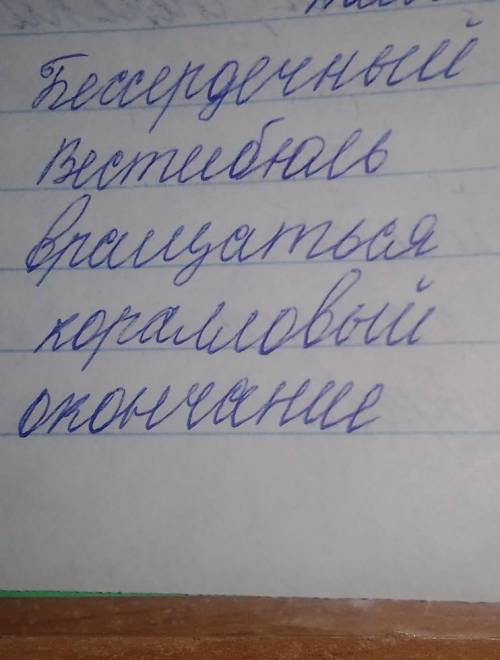 Бессердечный
Вестибюль
вращаться
коралловый
окончание